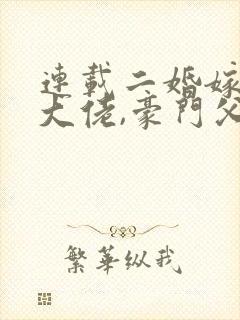 連載二婚嫁
大佬,豪門父
繁華纵我